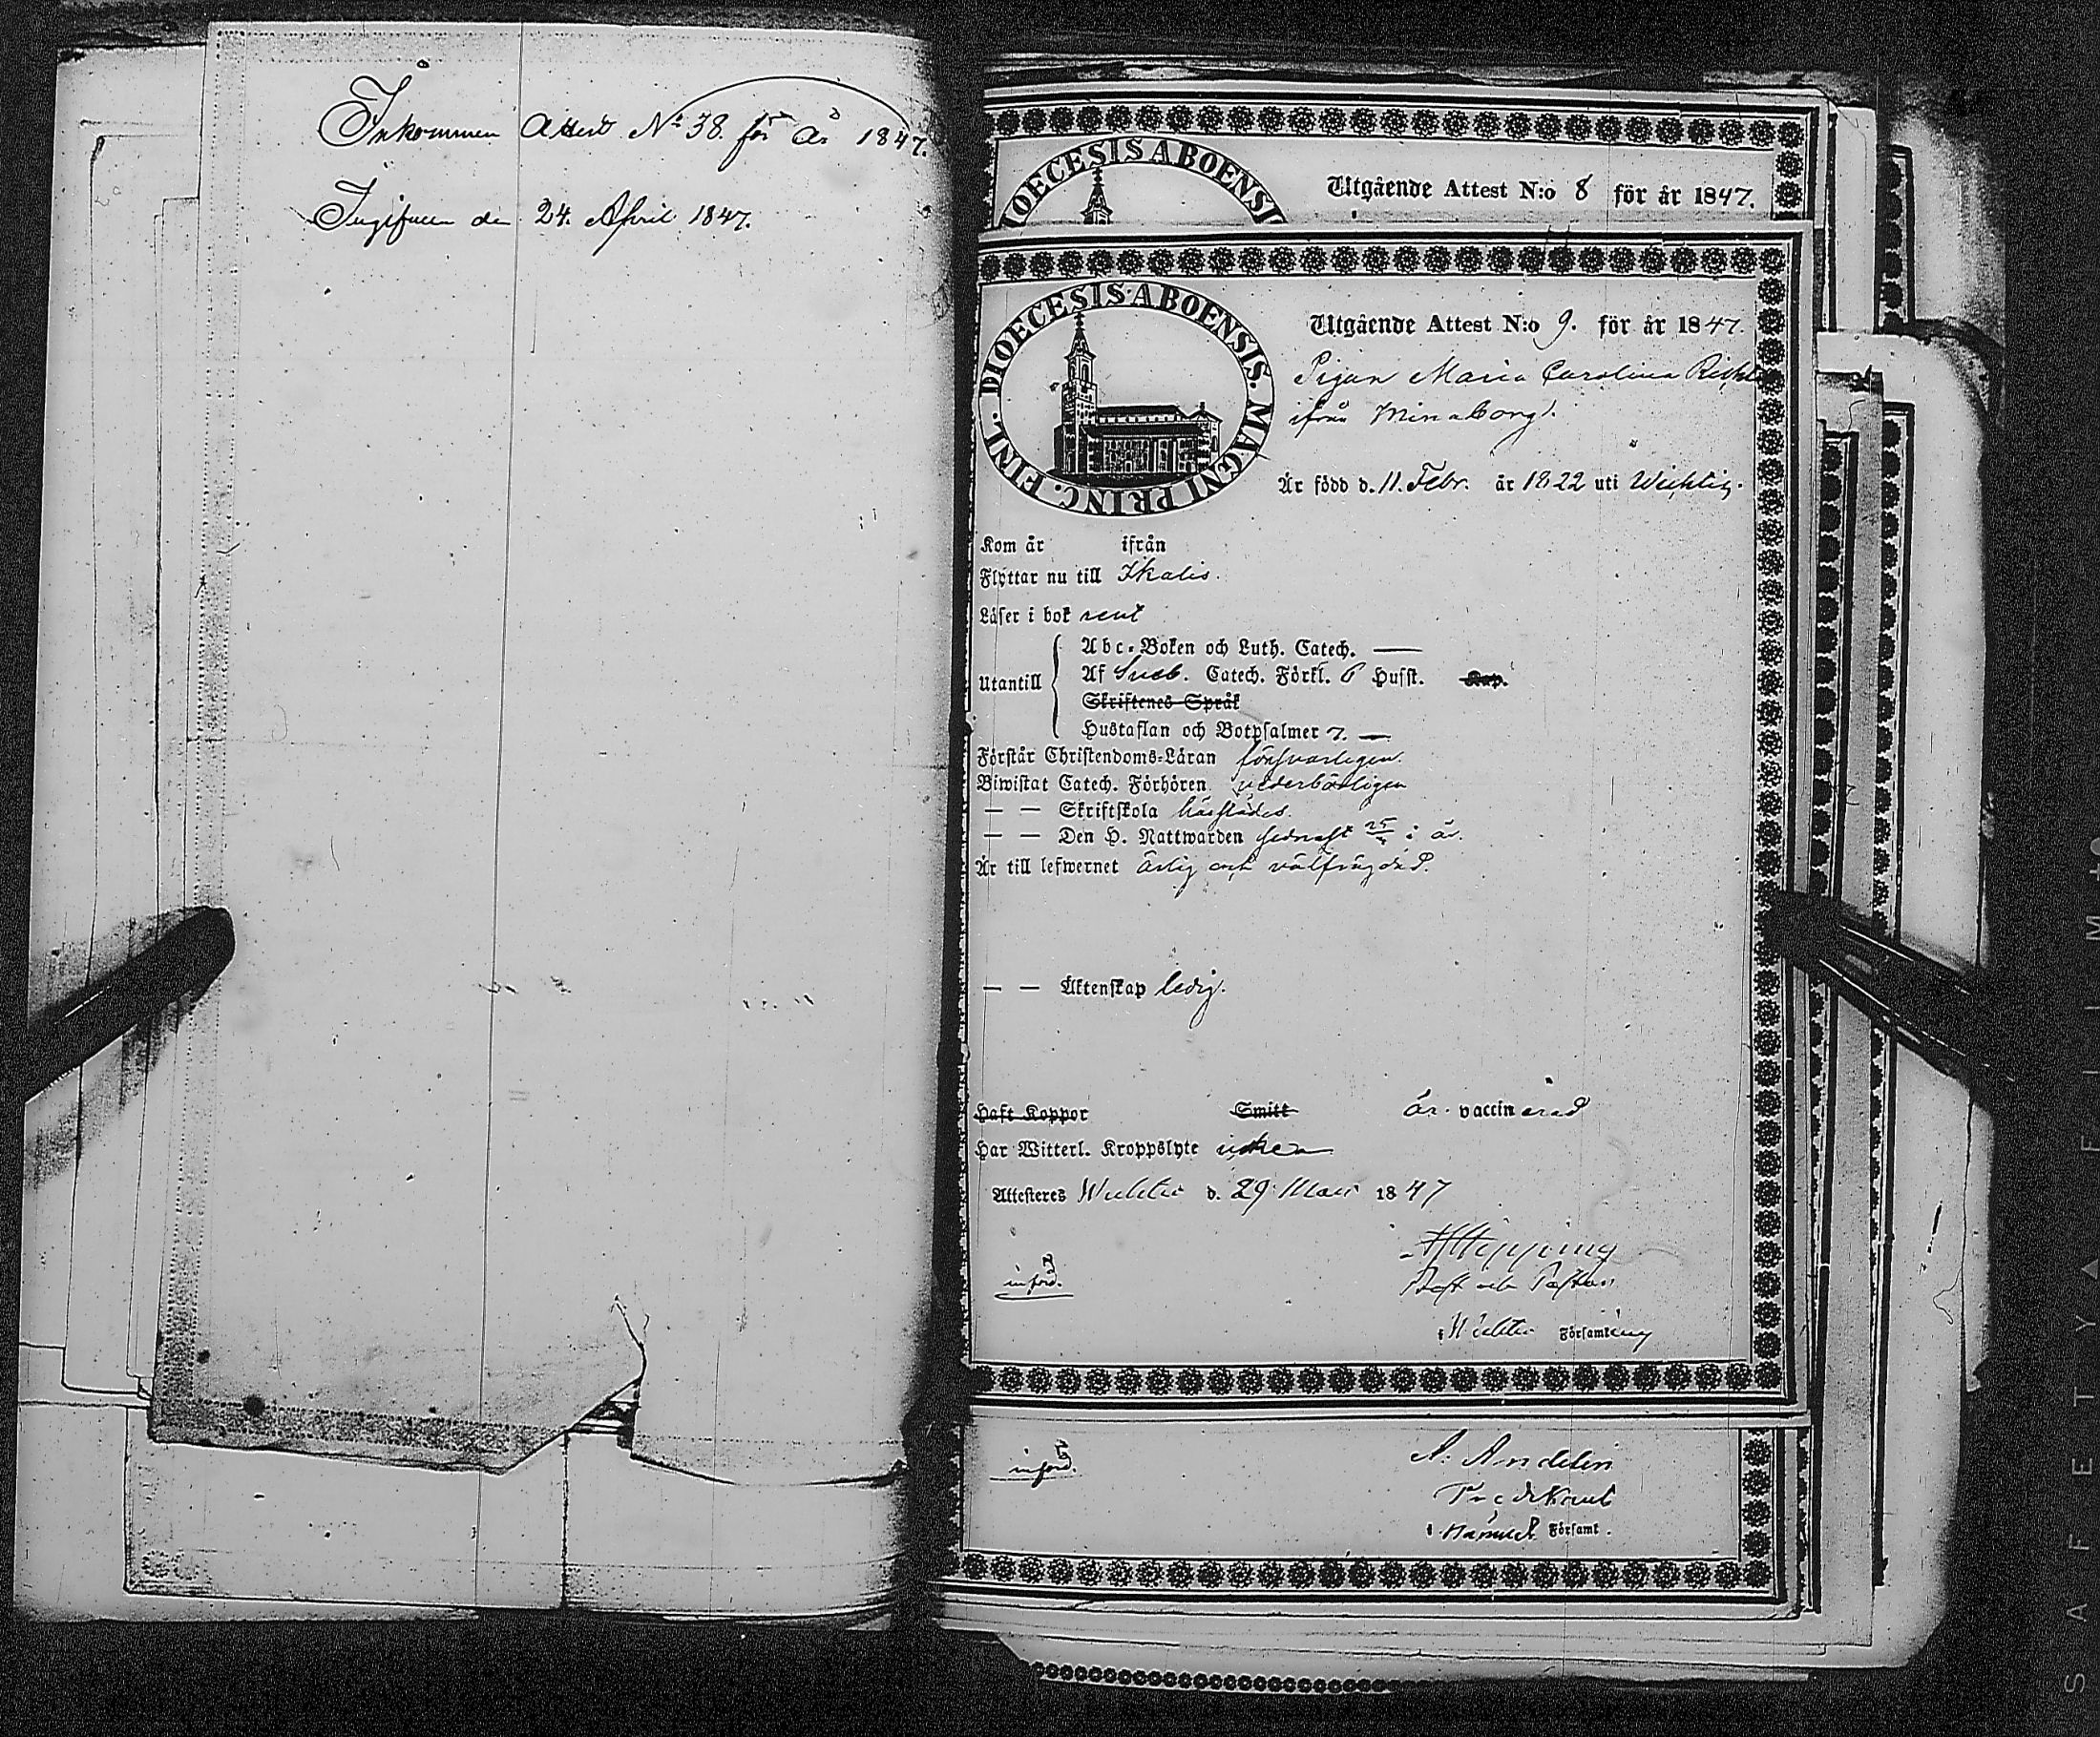 Inkommen Attest No 38. för år 1847.
Ingifven den 24. April 1847.
DIOECESIS ABOENSI
Utgående Attest N:o 8 för år 1847.
DIOECESIS ABOENSIS. MAGNI PRINC. FINL.
Utgående Attest N:o 9. för år 1847.
Pigan Maria Carolina
ifrån Minaborg.
Är född d. 11. Febr. år 1822 uti Wichtis.
Kom år ifrån
Flyttar nu till Ikalis.
Läser i bok rent
Utantill
Abc-Boken och Luth. Catech. —
Af Sveb. Catech. Förkl. 6 Husst. Kap.
Skriftenes Språk
Hustaflan och Botpsalmer 7. —
Förstår Christendoms-Läran försvarligen.
Biwistat Catech. Förhören vederbörligen
— — Skriftskola härstädes.
— — Den H. Nattwarden sednast i år.
Är till lefwernet ärlig och välfrägdad.
— — Äktenskap ledig.
Haft Koppor Smitt är vaccinerad
Har Witterl. Kroppslyte icke
Attesteres Wichtis d. 29 Mars 1847
införd.
i Wichtis Församling
införd.
A. Andelin
Predikant
i Församl.
SAFETY FILM